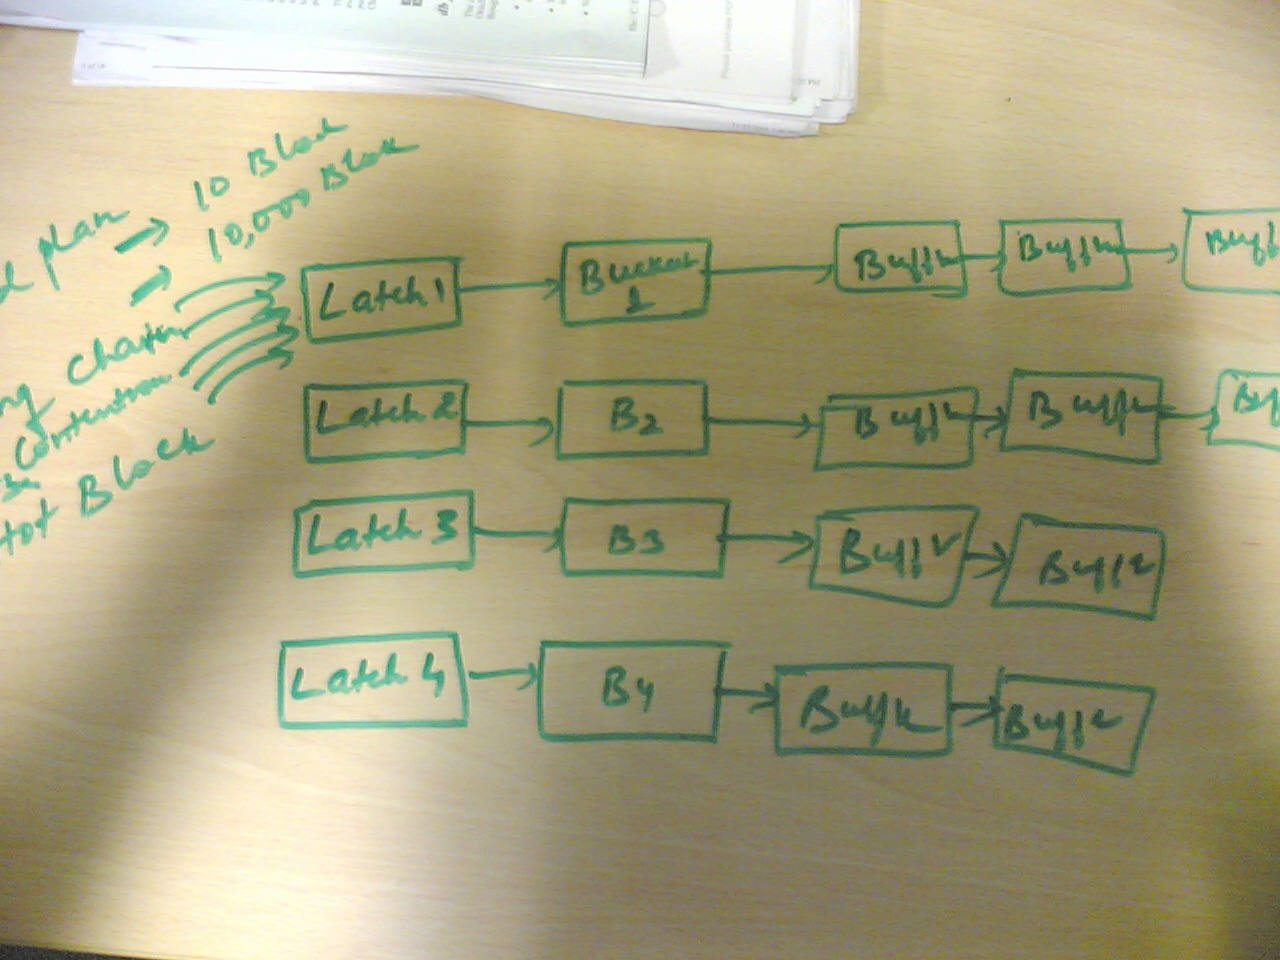 plan → 10 Block
→ 10,000 Block
Chain
Contention
Hot Block
Latch 1 → Bucket 1 → Buffer → Buffer → Buff
Latch 2 → B2 → Buffer → Buffer → Buf
Latch 3 → B3 → Buffer → Buffer
Latch 4 → B4 → Buffer → Buffer